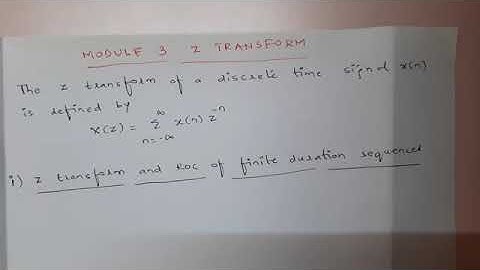 MODULE 3 Z TRANSFORM
The z transform of a discrete time signal x(n)
is defined by
x(z) = ∞ Σ n=-∞ x(n) z^-n
i) z transform and ROC of finite duration sequences